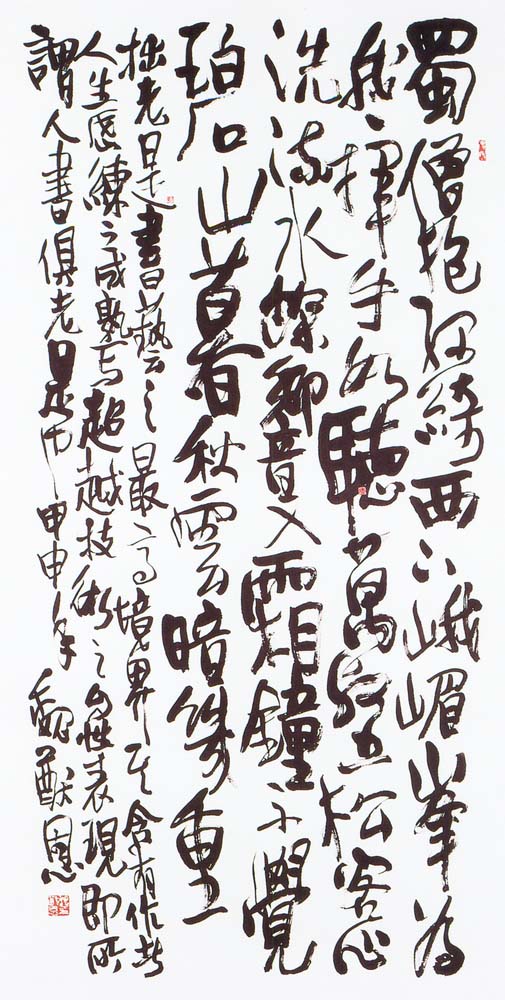 蜀僧抱綠綺西下峨嵋峯為
我一揮手如聽萬壑松客心
洗流水餘響入霜鐘不覺
碧山暮秋雲暗幾重
拙老是書藝之最高境界其含有作者
人生歷練之成熟与超越技術之性表現即所
謂人書俱老是也甲申年魏猷恩